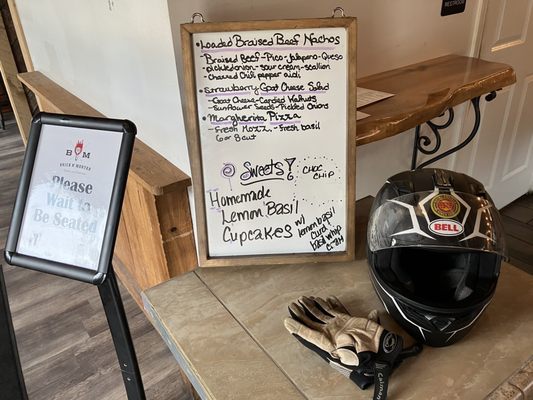 Loaded Braised Beef Nachos
Braised Beef - Pico - Jalapeño - Queso
pickled onion - sour cream - scallion
Charred Chili pepper aioli
Strawberry Goat Cheese Salad
Goat Cheese - Candied Walnuts
Sunflower Seeds - Pickled Onions
Margherita Pizza
Fresh Mozz - Fresh basil
6 or 8 cut
Sweets
CHOC
CHIP
Homemade
Lemon Basil
Cupcakes
w/
lemon basil
curd
basil whip
B M
BRICK N' MORTAR
Please
Wait to
Be Seated
BELL
RESTROOM